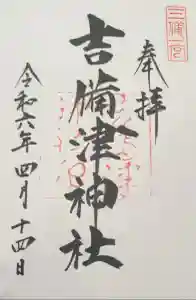 奉拝
三備一宮
吉備津神社
令和六年四月十四日